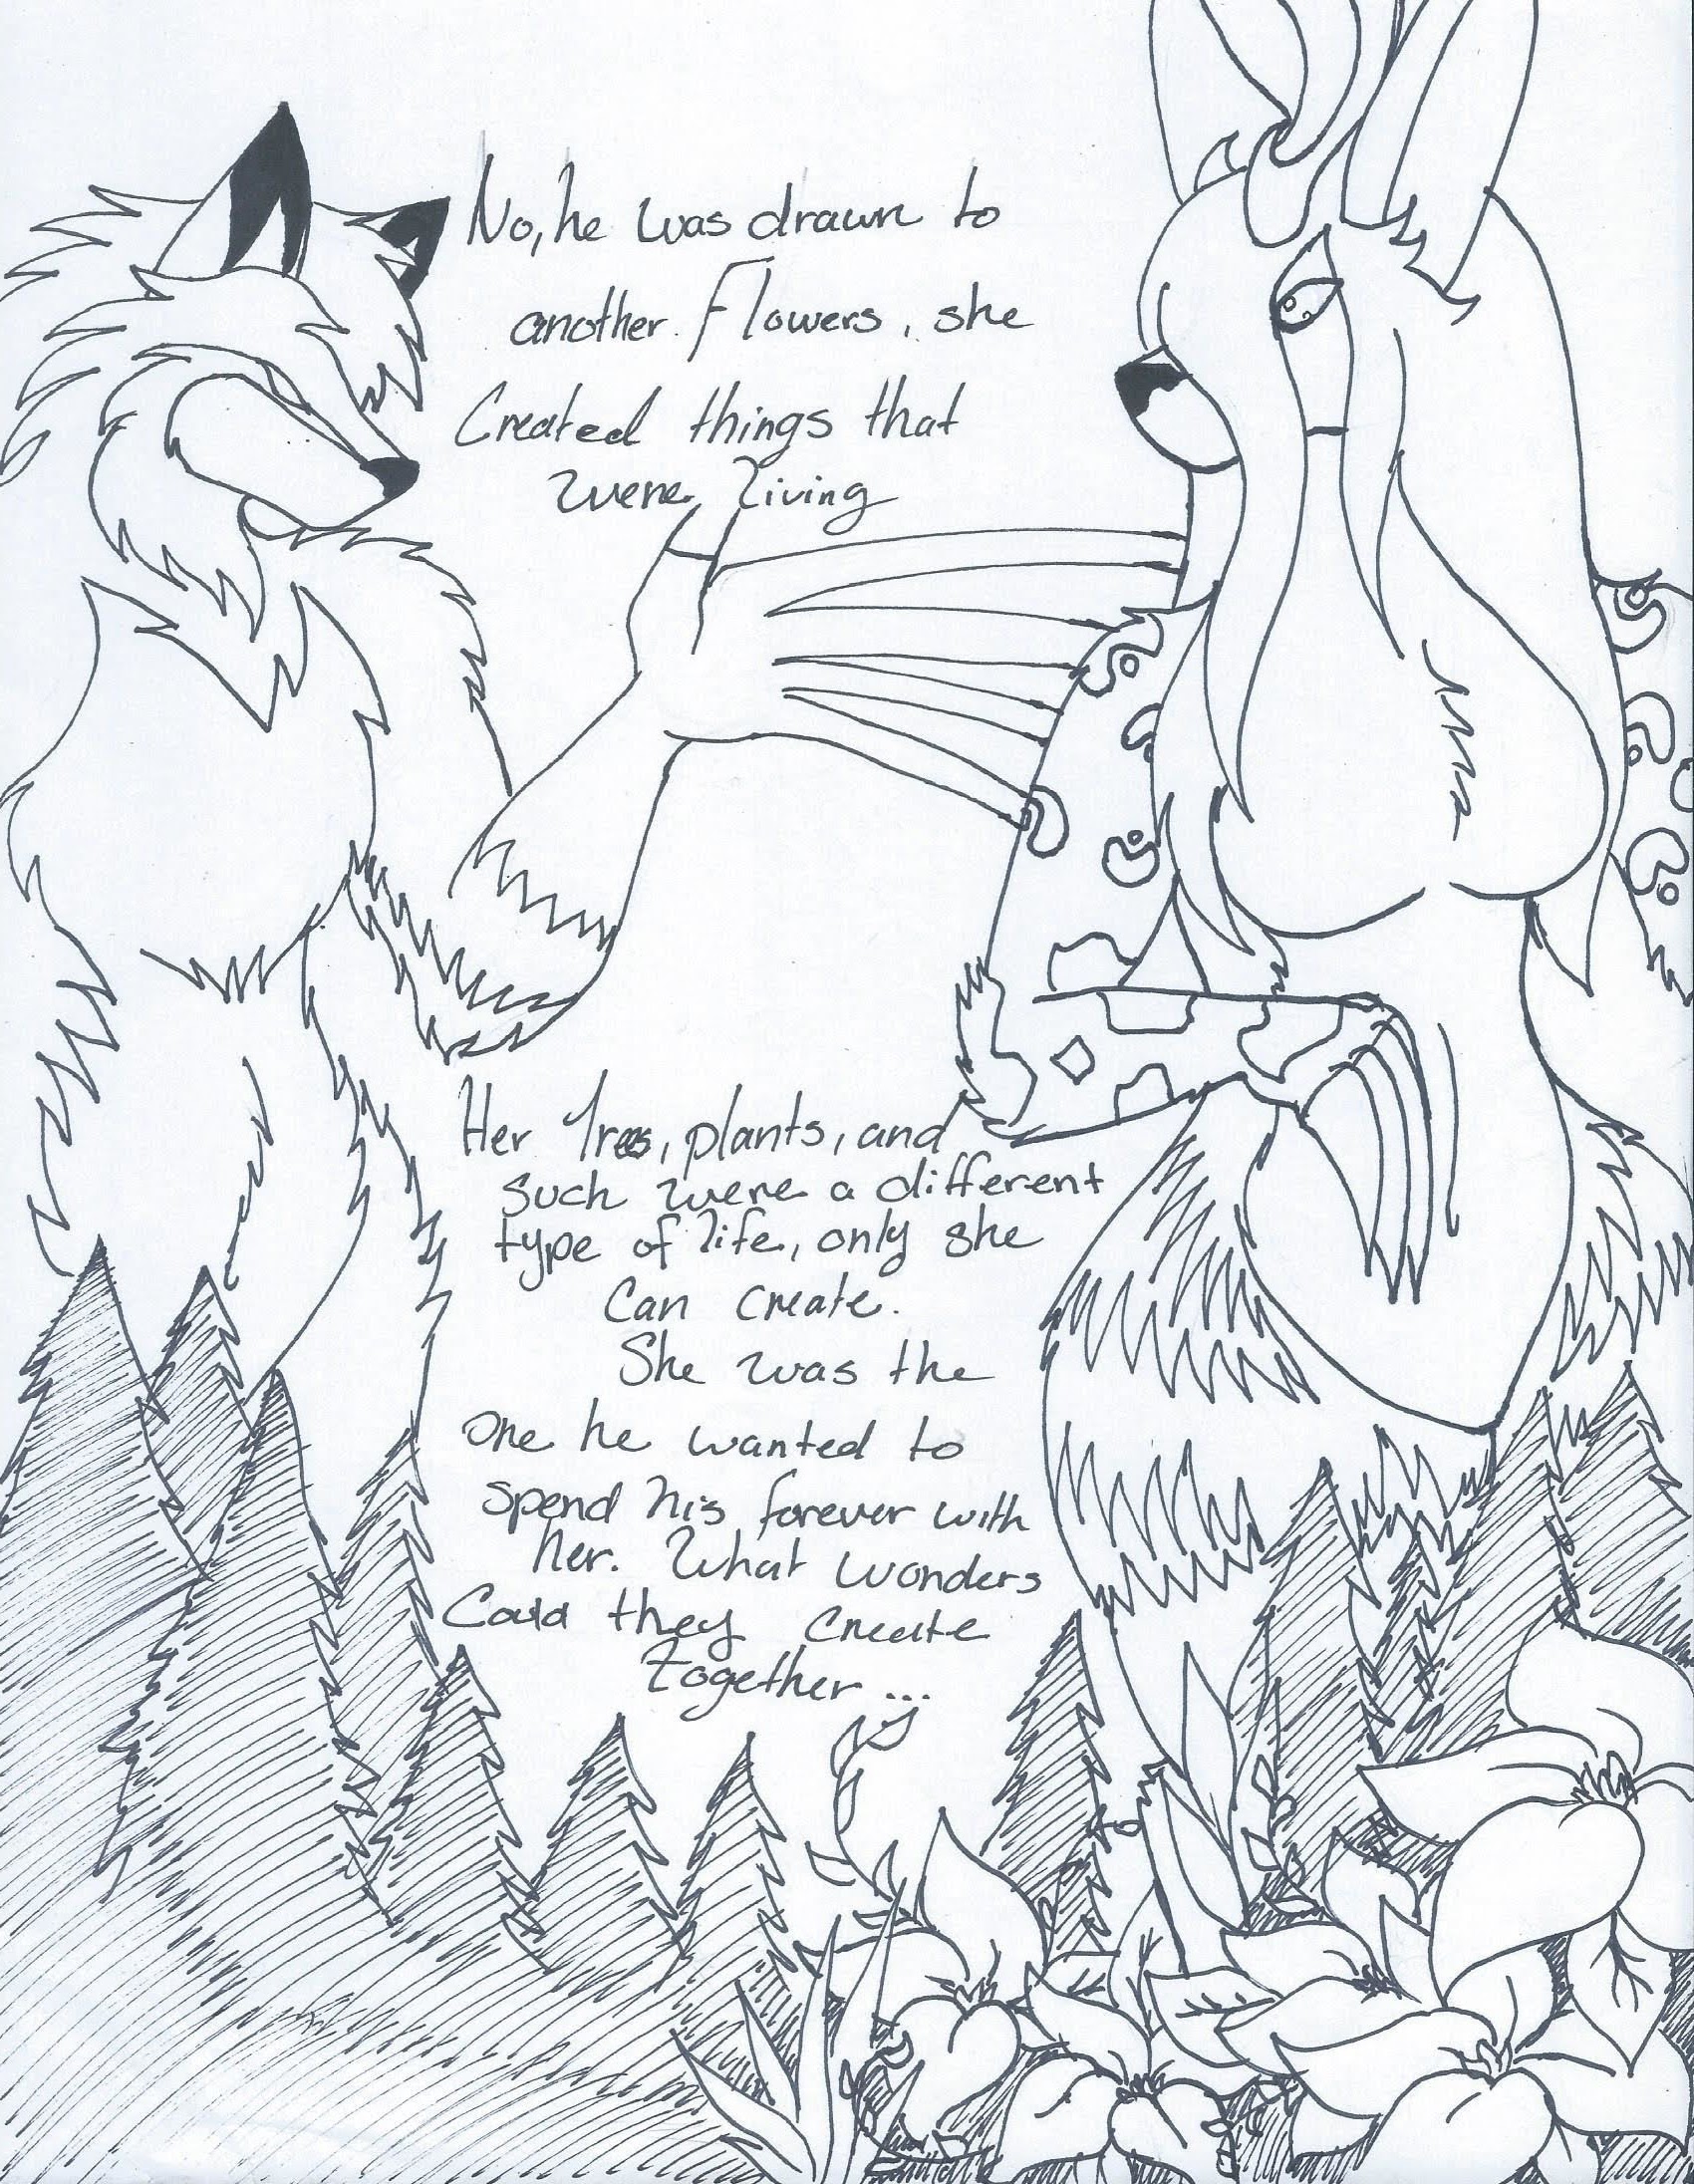 No, he was drawn to
another. Flowers, she
Created things that
were living
Her Trees, plants, and
such were a different
type of life, only she
can create.
She was the
one he wanted to
spend his forever with
her. What wonders
Could they create
together ...